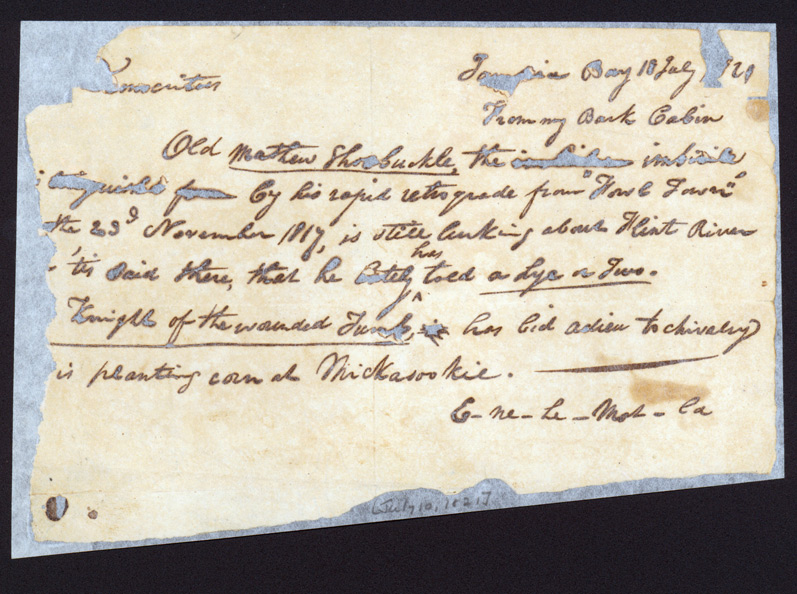 Bay 18 July
From my Bark Cabin
Old Mathew Shoebuckle, the imbisile
by his rapid retrograde from "Fowl Town"
the 23d November 1817, is still lurking about Flint River
'tis said there, that he has told a Lye or Two.
Knight of the wounded has bid adieu to chivalry
is planting corn at Mickasookie.
E-ne-he-Mot-la